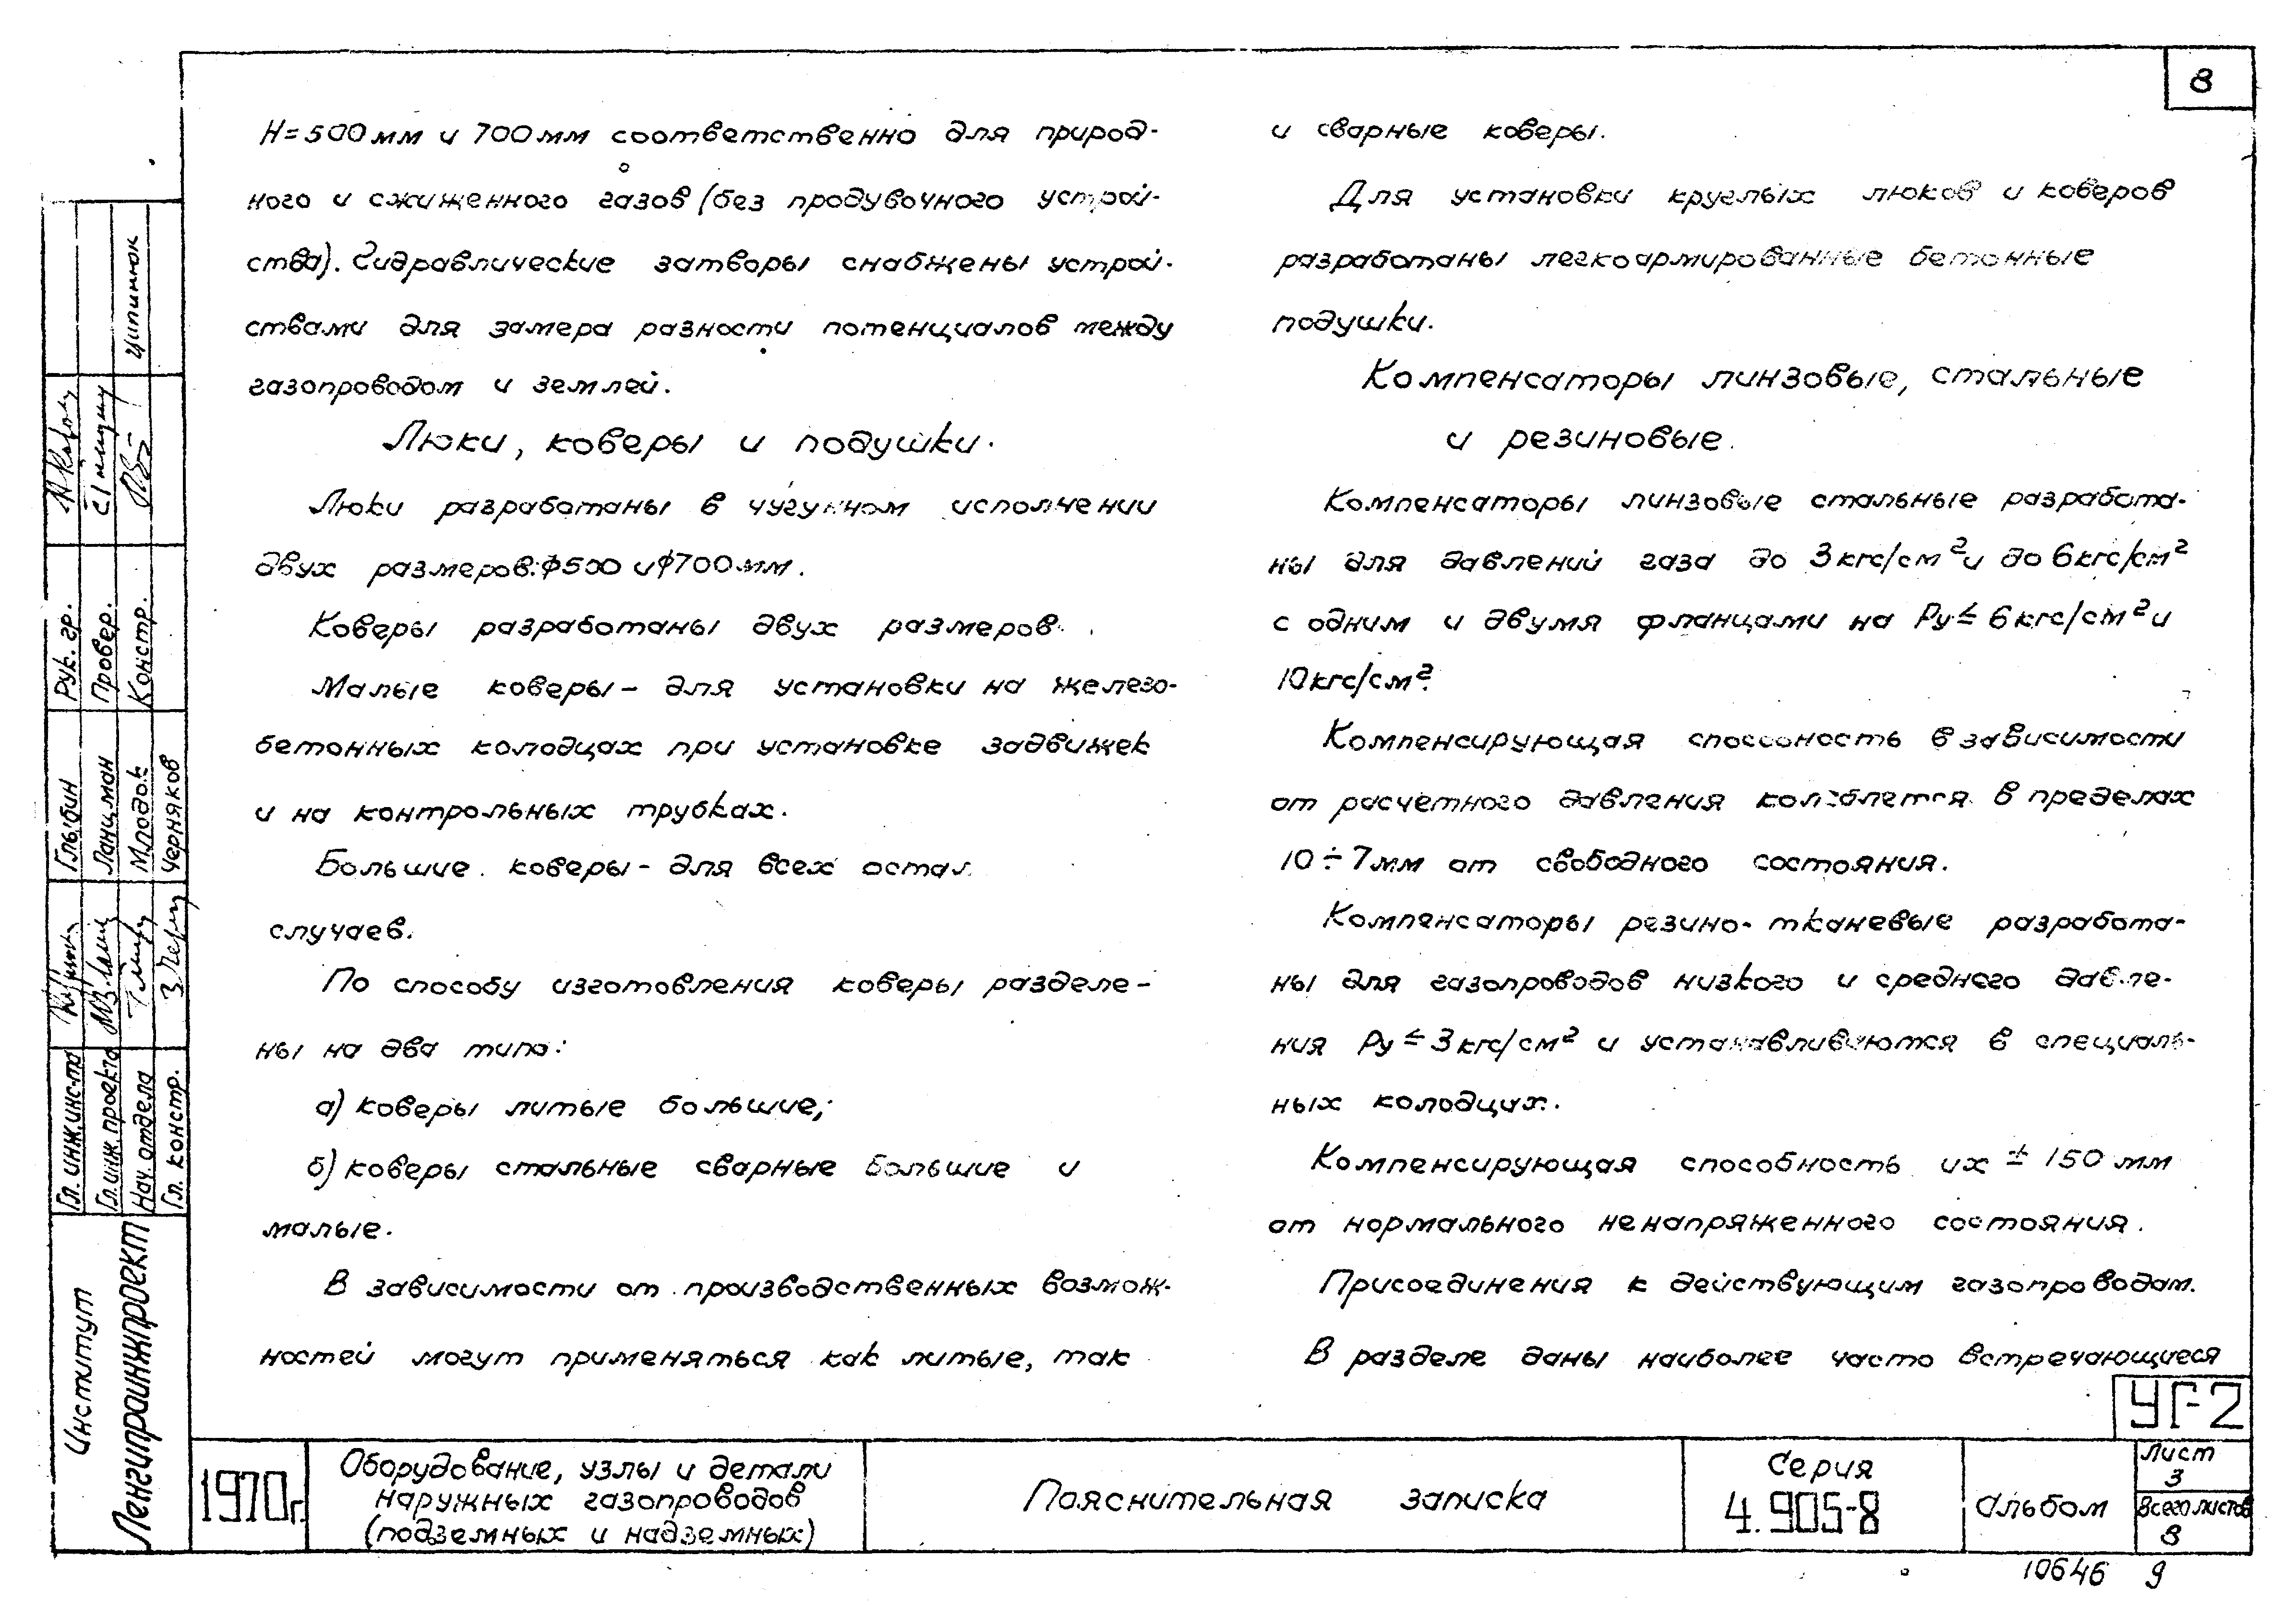 8
H=500мм и 700мм соответственно для природ-
ного и сжиженного газов (без продувочного устрой-
ства). Гидравлические затворы снабжены устрой-
ствами для замера разности потенциалов между
газопроводом и землей.
Люки, коверы и подушки.
Люки разработаны в чугунном исполнении
двух размеров: ф500 и ф700мм.
Коверы разработаны двух размеров.
Малые коверы - для установки на железо-
бетонных колодцах при установке задвижек
и на контрольных трубках.
Большие коверы - для всех остал.
случаев.
По способу изготовления коверы разделе-
ны на два типа:
а) коверы литые большие;
б) коверы стальные сварные большие и
малые.
В зависимости от производственных возмож-
ностей могут применяться как литые, так
и сварные коверы.
Для установки круглых люков и коверов
разработаны легкоармированные бетонные
подушки.
Компенсаторы линзовые, стальные
и резиновые.
Компенсаторы линзовые стальные разработа-
ны для давлений газа до 3кгс/см² и до 6кгс/см²
с одним и двумя фланцами на Ру≤ 6кгс/см² и
10кгс/см².
Компенсирующая способность в зависимости
от расчетного давления колеблется в пределах
10÷7мм от свободного состояния.
Компенсаторы резино-тканевые разработа-
ны для газопроводов низкого и среднего давле-
ния Ру≤3кгс/см² и устанавливаются в специаль-
ных колодцах.
Компенсирующая способность их ± 150 мм
от нормального ненапряженного состояния.
Присоединения к действующим газопроводам.
В разделе даны наиболее часто встречающиеся
УГ-2
1970г.
Оборудование, узлы и детали
наружных газопроводов
(подземных и надземных)
Пояснительная записка
Серия
4.905-8
Альбом
Лист
3
Всего листов
8
10646 9
Институт
Ленгипроинжпроект
Гл. инж. инс-та
Гл. инж. проекта
Нач. отдела
Гл. констр.
Глыбин
Ланцман
Млодок
Черняков
Рук. гр.
Провер.
Констр.
Ципинюк